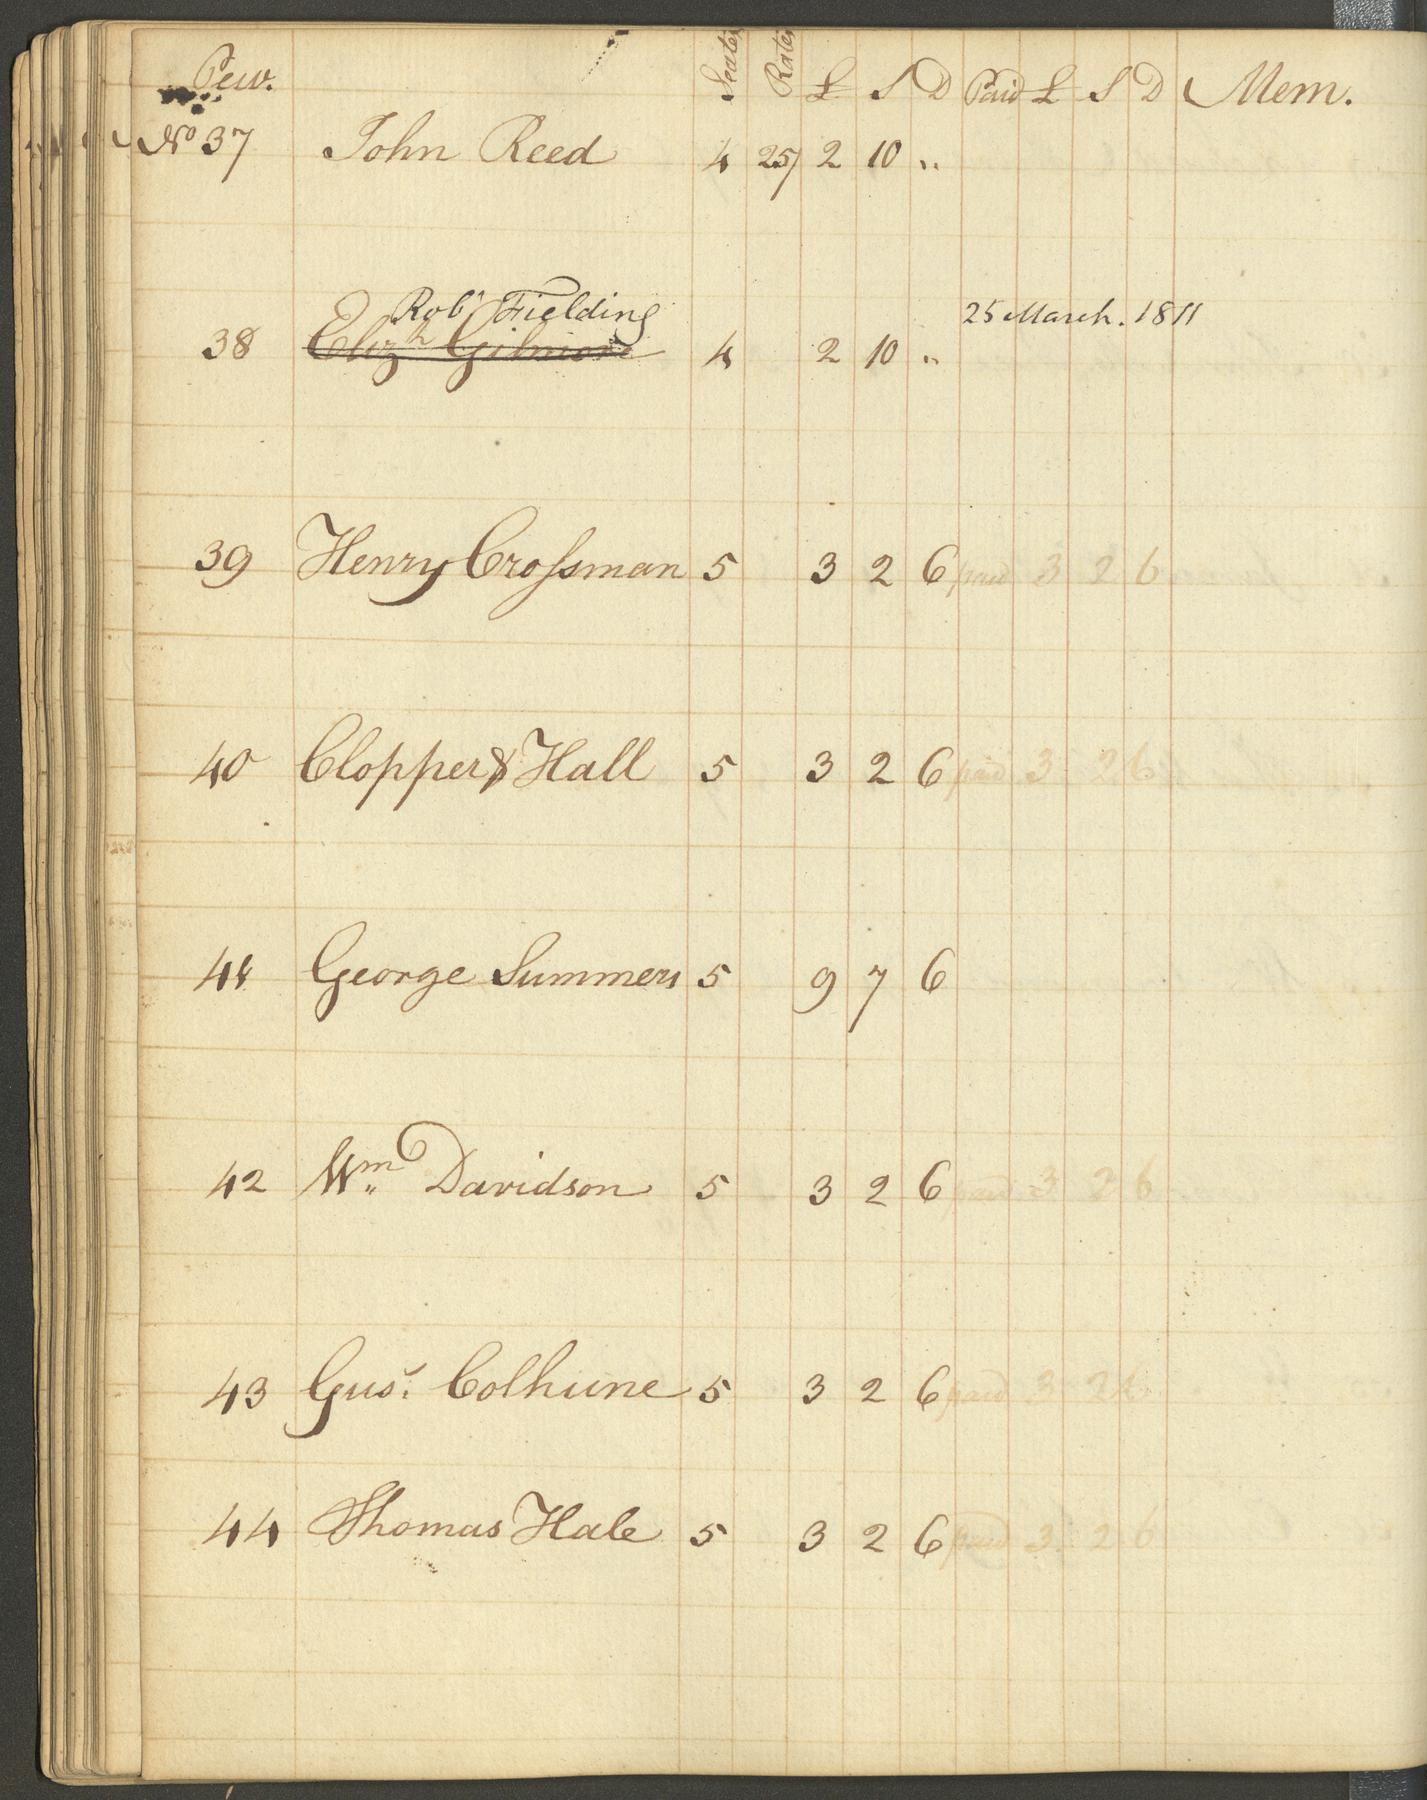 Pew. Seates Rates £ S D Paid £ S D Mem.
No 37 John Reed 4 25/ 2 10 ..
Robt Fielding 25 March. 1811
38 Elizh Gilmore 4 2 10 ..
39 Henry Crofsman 5 3 2 6 paid 3 2 6
40 Clopper & Hall 5 3 2 6 paid 3 2 6
41 George Summers 5 9 7 6
42 Wm Davidson 5 3 2 6 paid 3 2 6
43 Gus. Colhune 5 3 2 6 paid 3 2 6
44 Thomas Hale 5 3 2 6 paid 3 2 6